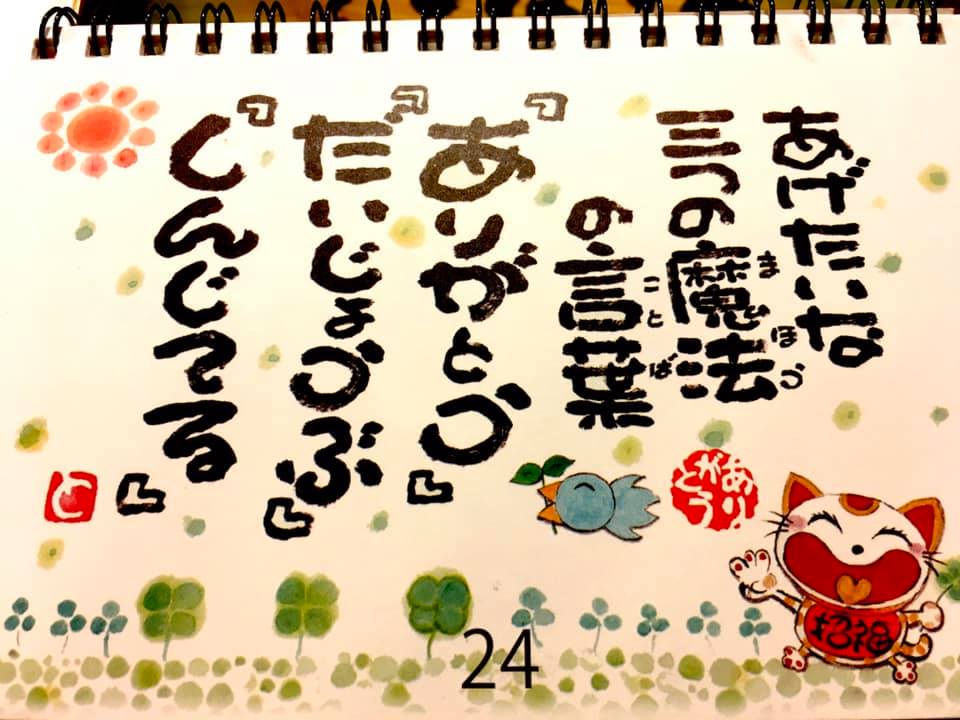 あげたいな
三つの魔法
まほう
の言葉
ことば
『ありがとう』
『だいじょうぶ』
『しんじてる』
と
ありがとう
招福
24